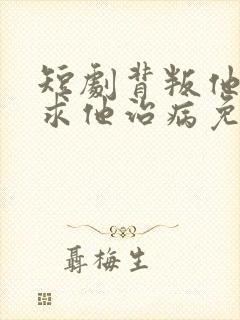 短劇背叛他
求他治病免
聶梅生